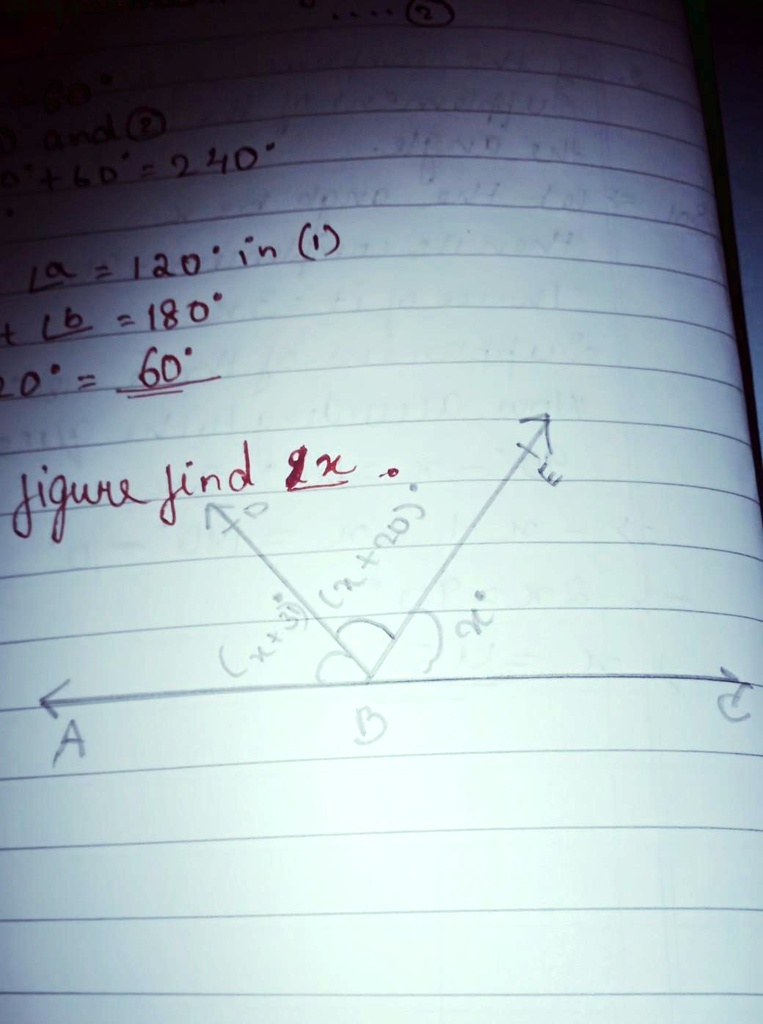 .... ②
60°
and ②
0° + 60° = 240°
∠a = 120° in (1)
+ ∠b = 180°
20° = 60°
figure find ∠x .
D
E
(x+20)°
x°
A
B
C